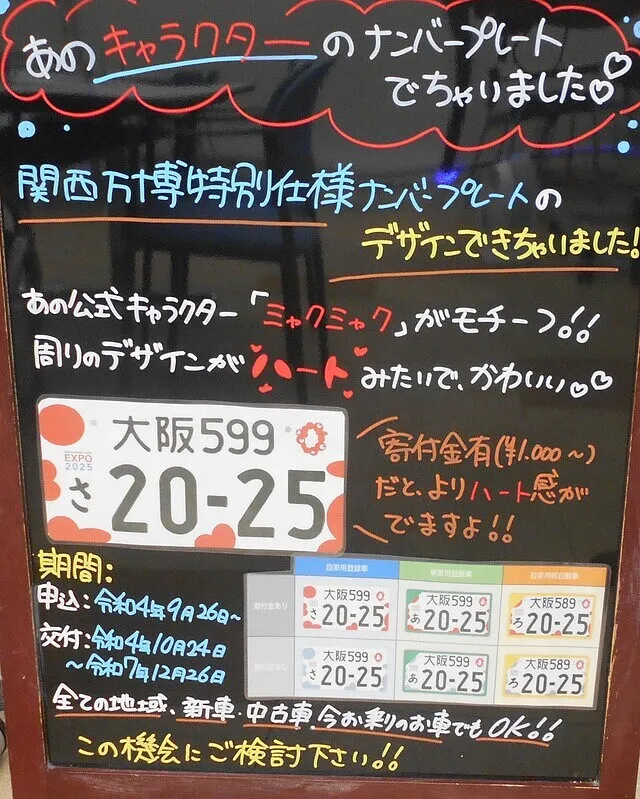 あのキャラクターのナンバープレート
でちゃいました
関西万博特別仕様ナンバープレートの
デザインできちゃいました!
あの公式キャラクター「ミャクミャク」がモチーフ!!
周りのデザインがハートみたいで、かわいい
大阪599
EXPO
2025
さ 20-25
寄付金有(¥1.000~)
だと、よりハート感が
でますよ!!
期間:
申込:令和4年9月26日~
交付:令和4年10月24日
~令和7年12月26日
自家用登録車 事業用登録車 自家用軽自動車
寄付金あり
大阪599 大阪599 大阪589
さ 20-25 あ 20-25 ろ 20-25
大阪599 大阪599 大阪589
さ 20-25 あ 20-25 ろ 20-25
全ての地域、新車・中古車、今お乗りのお車でもOK!!
この機会にご検討下さい!!